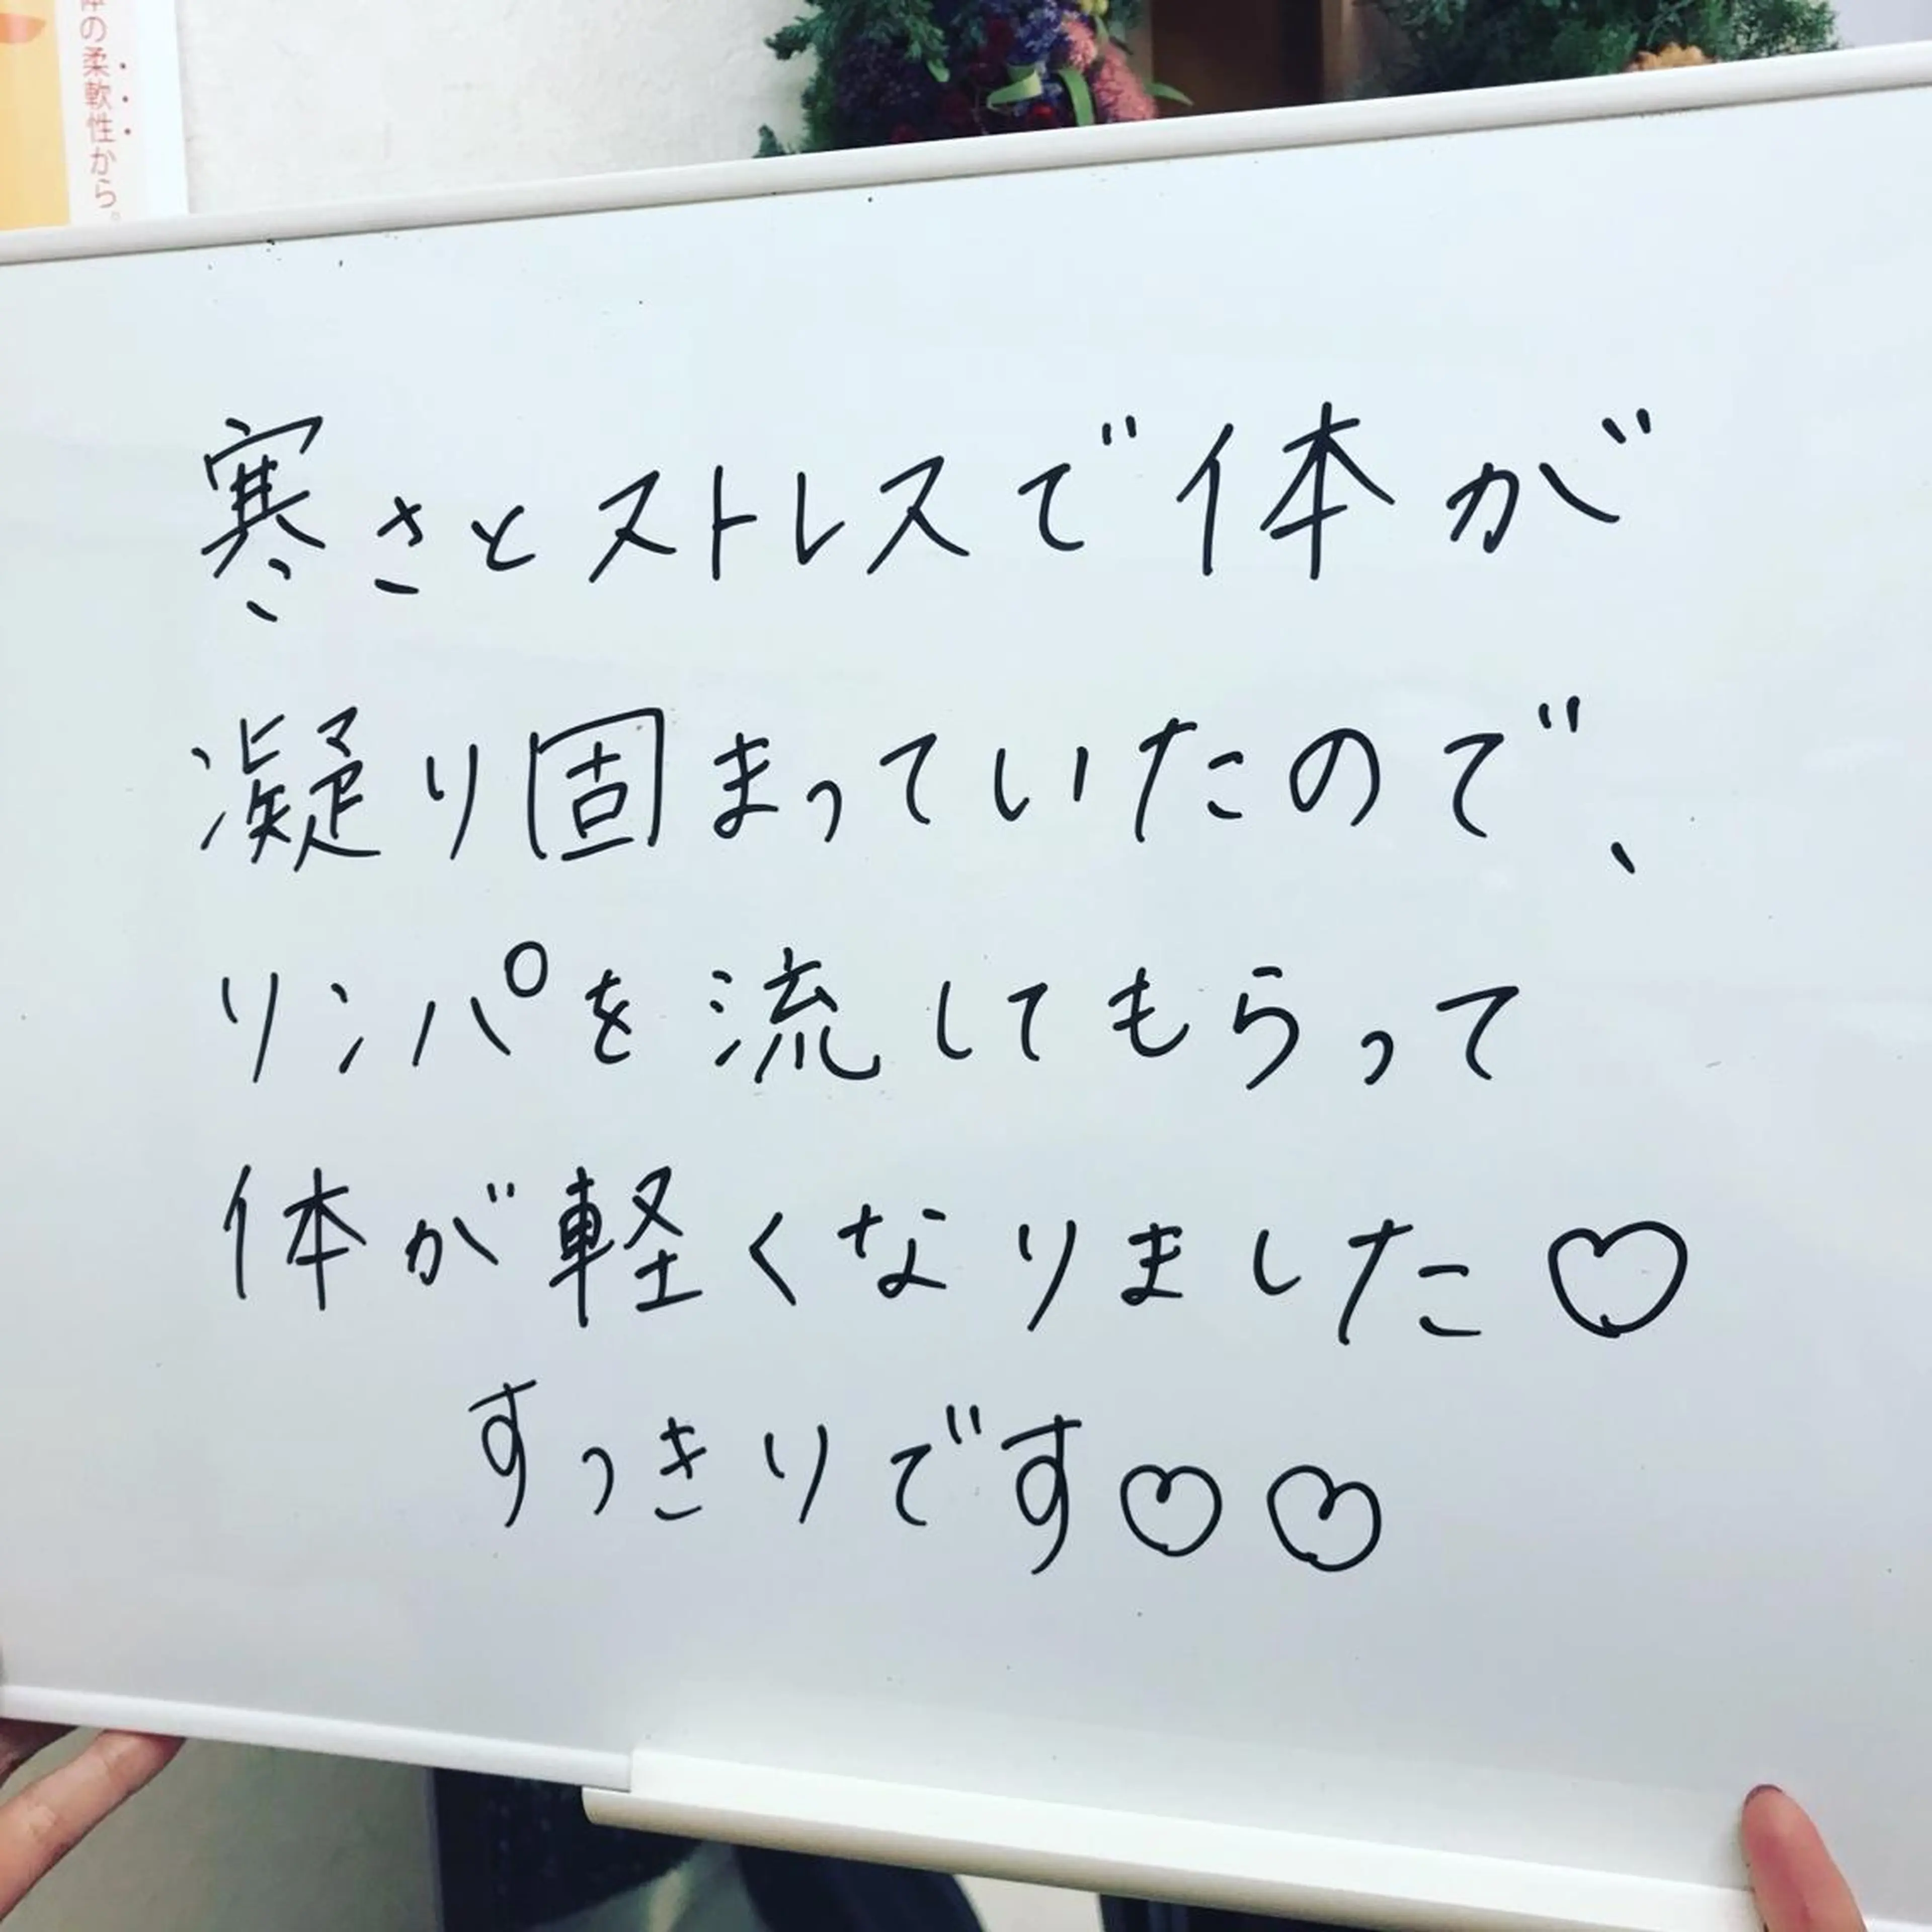 の柔軟性から。
寒さとストレスで体が
凝り固まっていたので、
リンパを流してもらって
体が軽くなりました♡
すっきりです♡♡